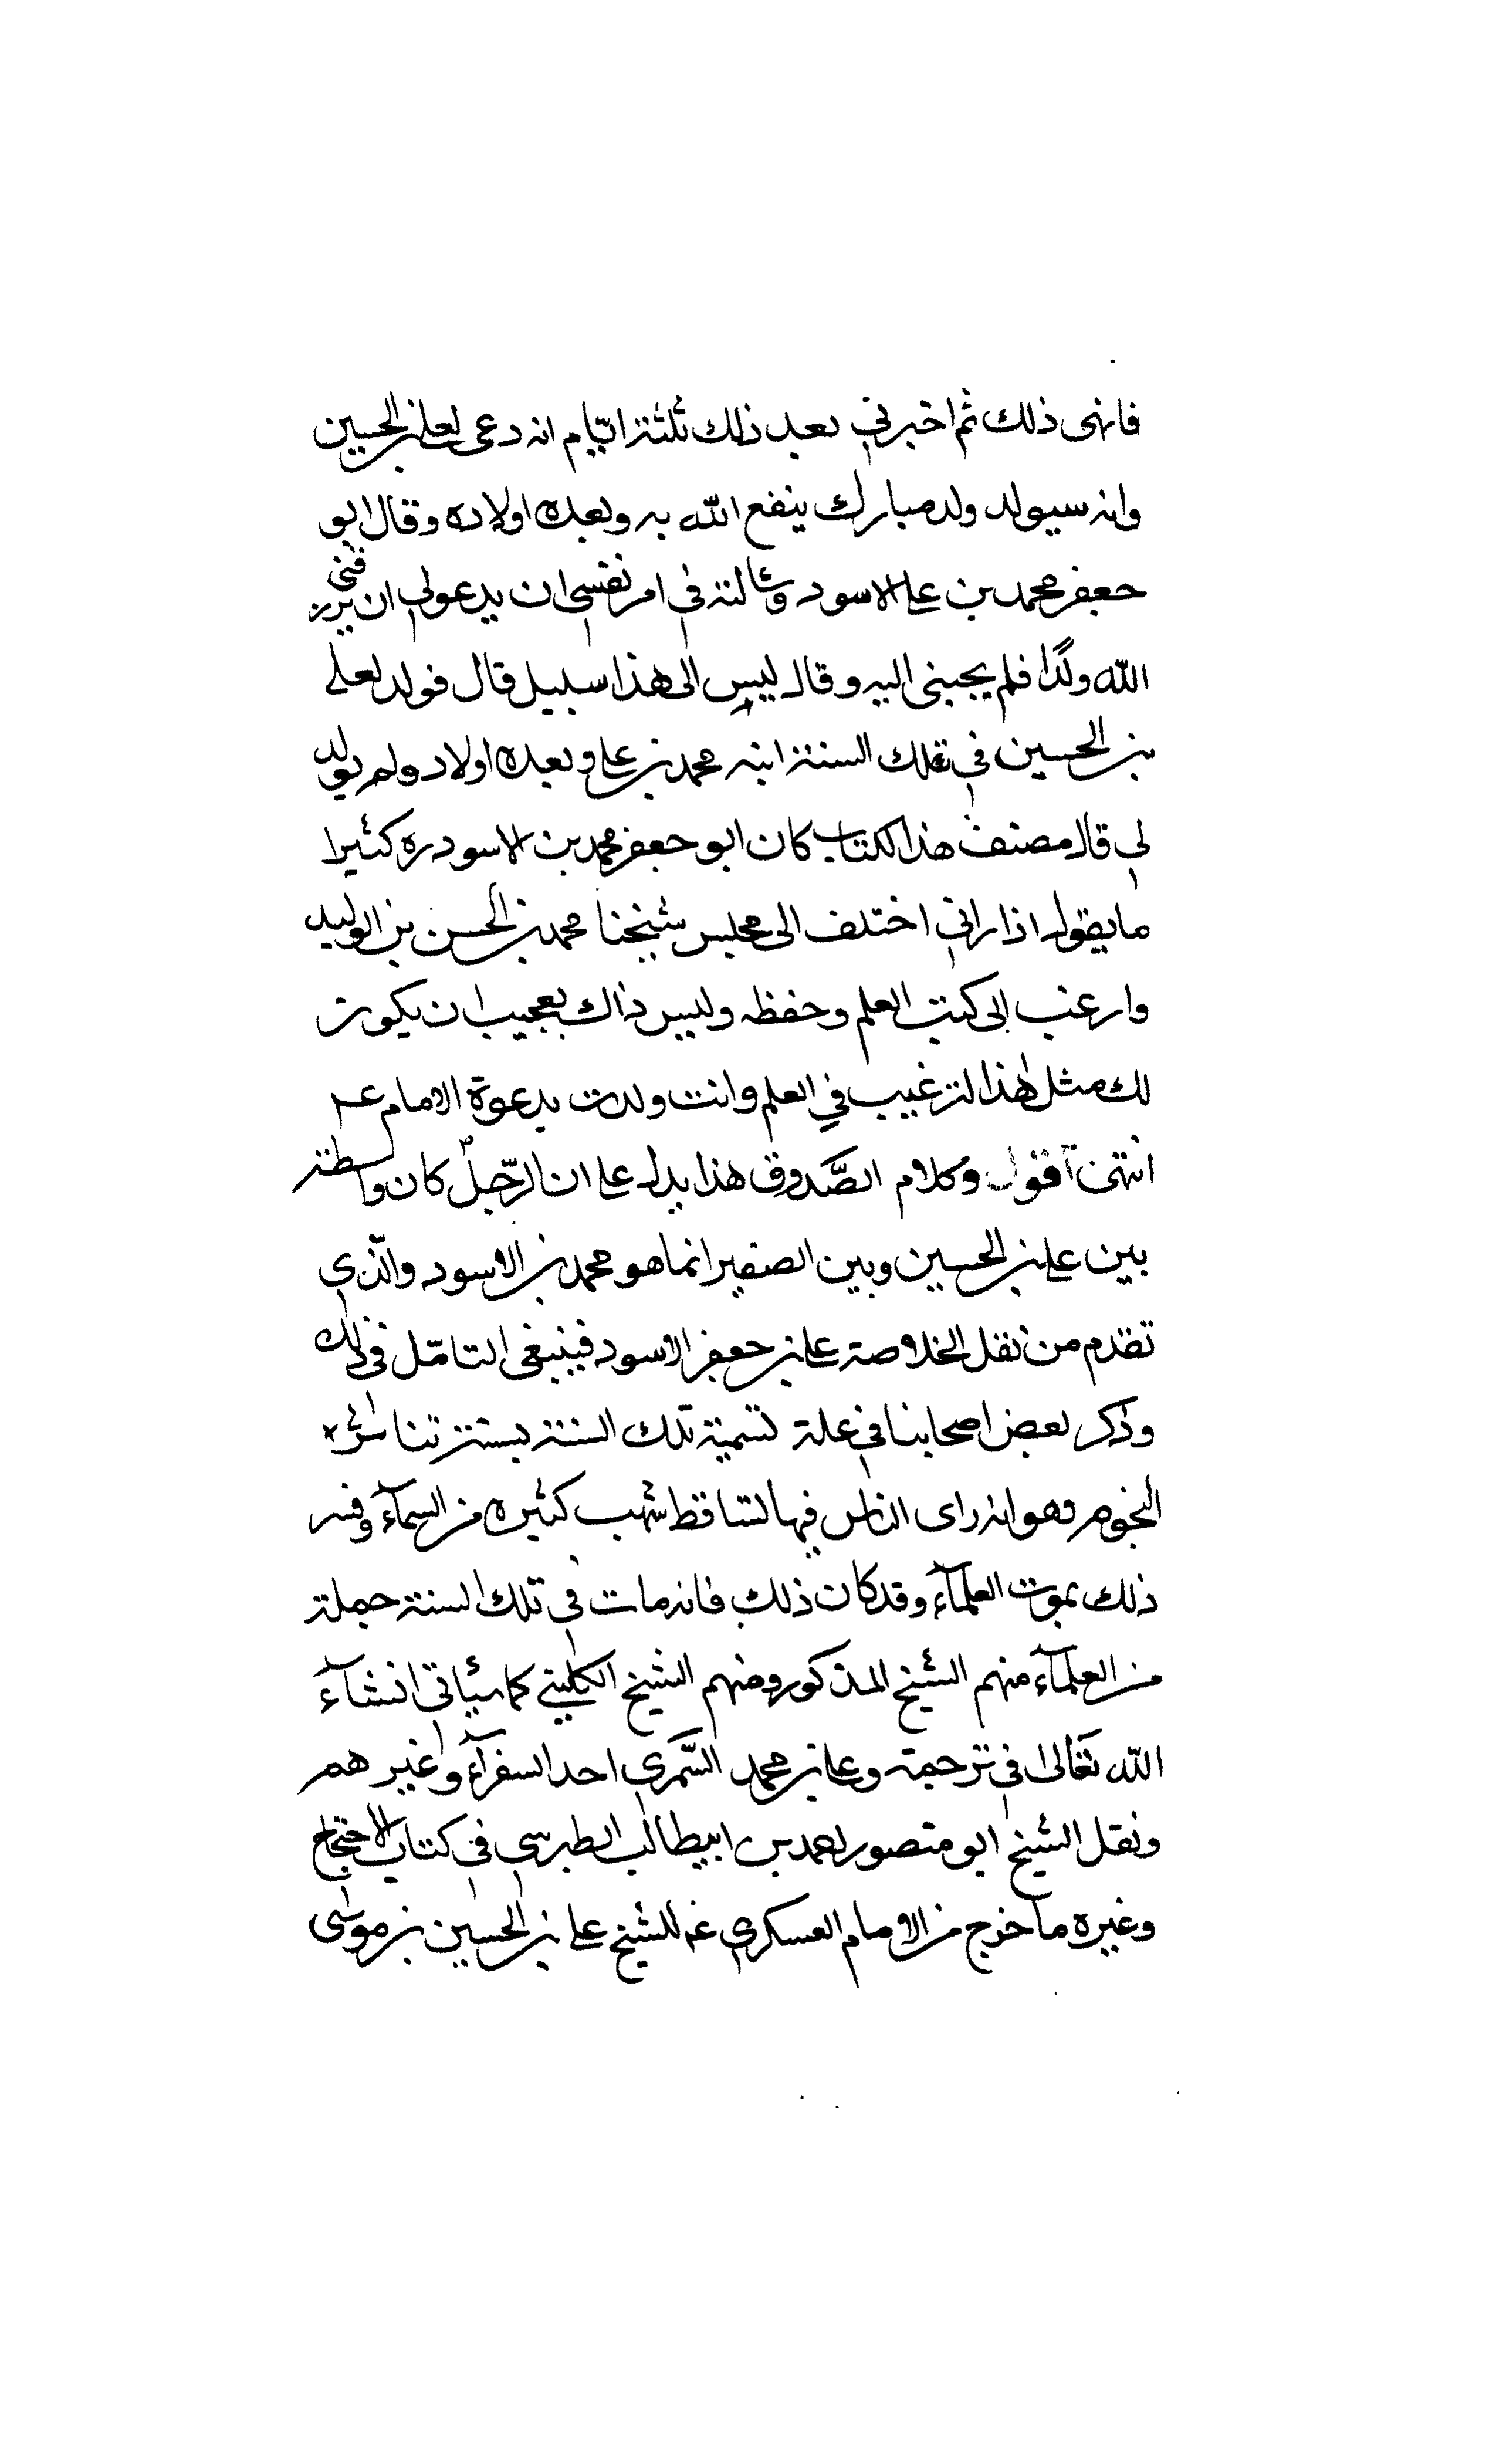 فانهى ذلك ثم اخبرني بعد ذلك ثلثة ايّام انه دعى لعلي بن الحسين
وانه سيولد ولد مبارك ينفع الله به وبعده اولاده وقال ابو
جعفر محمد بن علي الاسود وسالته في امر نفسي ان يدعو لي ان يرزقني
الله ولدًا فلم يجبني اليه وقال ليس الى هذا سبيل قال فولد لعلي
بن الحسين في تلك السنة ابنه محمد بن علي وبعده اولاد ولم يولد
لي قال مصنف هذا الكتاب كان ابو جعفر محمد بن الاسود ره كثيرا
ما يقول اذا راني اختلف الى مجلس شيخنا محمد بن الحسن بن الوليد
وارغب الى كتب العلم وحفظه وليس ذاك بعجيب ان يكون
لك مثل هذا لترغيب في العلم وانت ولدت بدعوة الامام ع
انتهى اقول وكلام الصَّدوق هذا يدل على ان الرّجل كان واسطة
بين علي بن الحسين وبين الصفير انما هو محمد بن الاسود والّذي
تقدم من نقل الخلاصة علي بن جعفر الاسود فينبغي التامّل في ذلك
وذكر بعض اصحابنا في علة تسمية تلك السنة بسنة تناثر
النجوم وهو انه راى الناس فيها تساقط شهب كثيره من السمآء وفسر
ذلك بموت العلمآء وقد كان ذلك فانه مات في تلك السنة جملة
من العلمآء منهم الشيخ المذكور ومنهم الشيخ الكليني كما سياتي انشآء
الله تعالى في ترجمته وعلي بن محمد السّمري احد السفرآء وغيرهم
ونقل الشيخ ابو منصور احمد بن ابيطالب الطبرسي في كتاب الاحتجاج
وغيره ما خرج من الامام العسكري ع للشيخ علي بن الحسين بن موسى